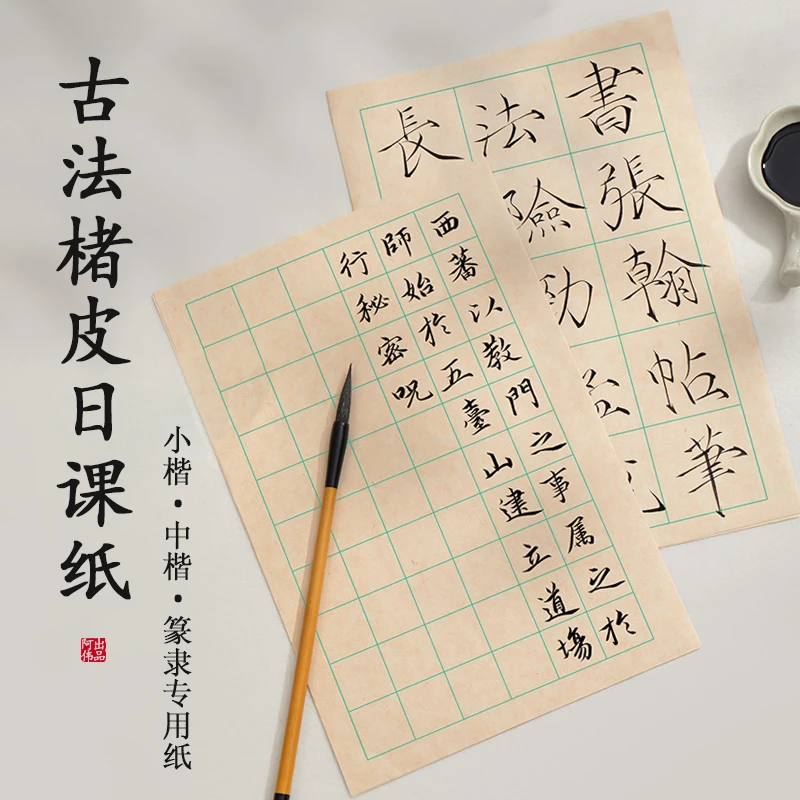 古法楮皮日课纸
小楷·中楷·篆隶专用纸
阿伟
出品
西蕃以教門之事属之於
師始於五臺山建立道場
行秘密呪
書張翰帖筆
法險勁
長